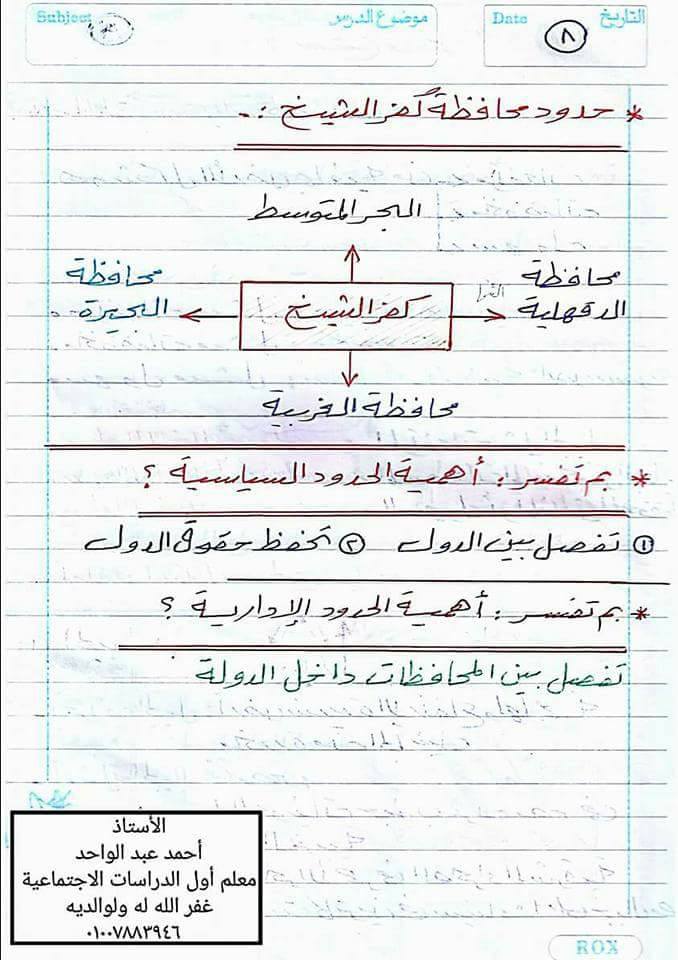 التاريخ
Date
٨
موضوع الدرس
Subject
* حدود محافظة كفر الشيخ :.
البحر المتوسط
محافظة
الدقهلية
كفر الشيخ
محافظة
البحيرة
محافظة الغربية
* بم تفسر : أهمية الحدود السياسية ؟
① تفصل بين الدول ② تحفظ حقوق الدول
* بم تفسر : أهمية الحدود الإدارية ؟
تفصل بين المحافظات داخل الدولة
الأستاذ
أحمد عبد الواحد
معلم أول الدراسات الاجتماعية
غفر الله له ولوالديه
٠١٠٠٧٨٨٣٩٤٦
ROX